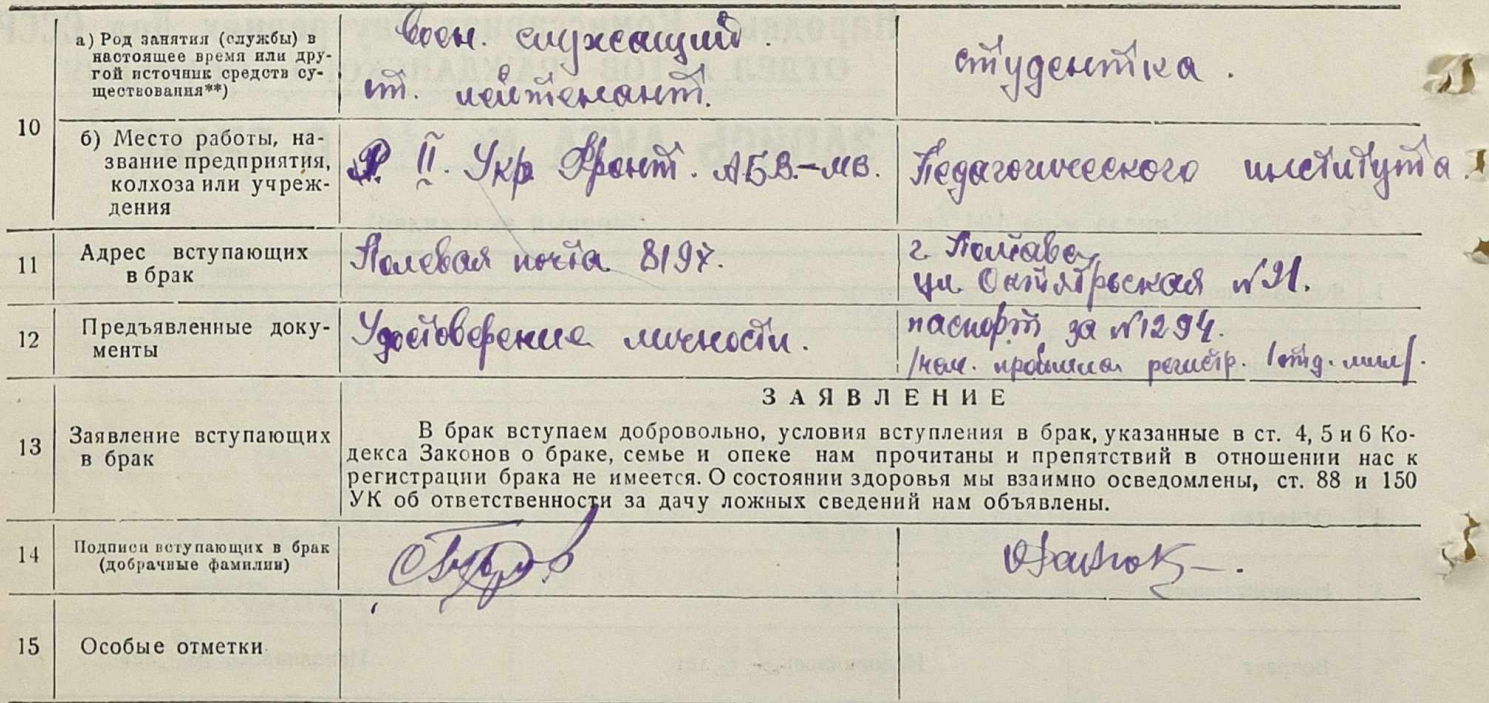 10
а) Род занятия (службы) в
настоящее время или дру-
гой источник средств су-
ществования**)
воен. служащий.
ст. лейтенант.
студентка.
б) Место работы, на-
звание предприятия,
колхоза или учреж-
дения
II. Укр Фронт. АБВ.-МВ.
Педагогического института
11
Адрес вступающих
в брак
Полевая почта 8197.
г. Полтава,
ул. Октябрьская №21.
12
Предъявленные доку-
менты
Удостоверение личности.
паспорт за №1294.
регистр.
13
Заявление вступающих
в брак
ЗАЯВЛЕНИЕ
В брак вступаем добровольно, условия вступления в брак, указанные в ст. 4, 5 и 6 Ко-
декса Законов о браке, семье и опеке нам прочитаны и препятствий в отношении нас к
регистрации брака не имеется. О состоянии здоровья мы взаимно осведомлены, ст. 88 и 150
УК об ответственности за дачу ложных сведений нам объявлены.
14
Подписи вступающих в брак
(добрачные фамилии)
15
Особые отметки